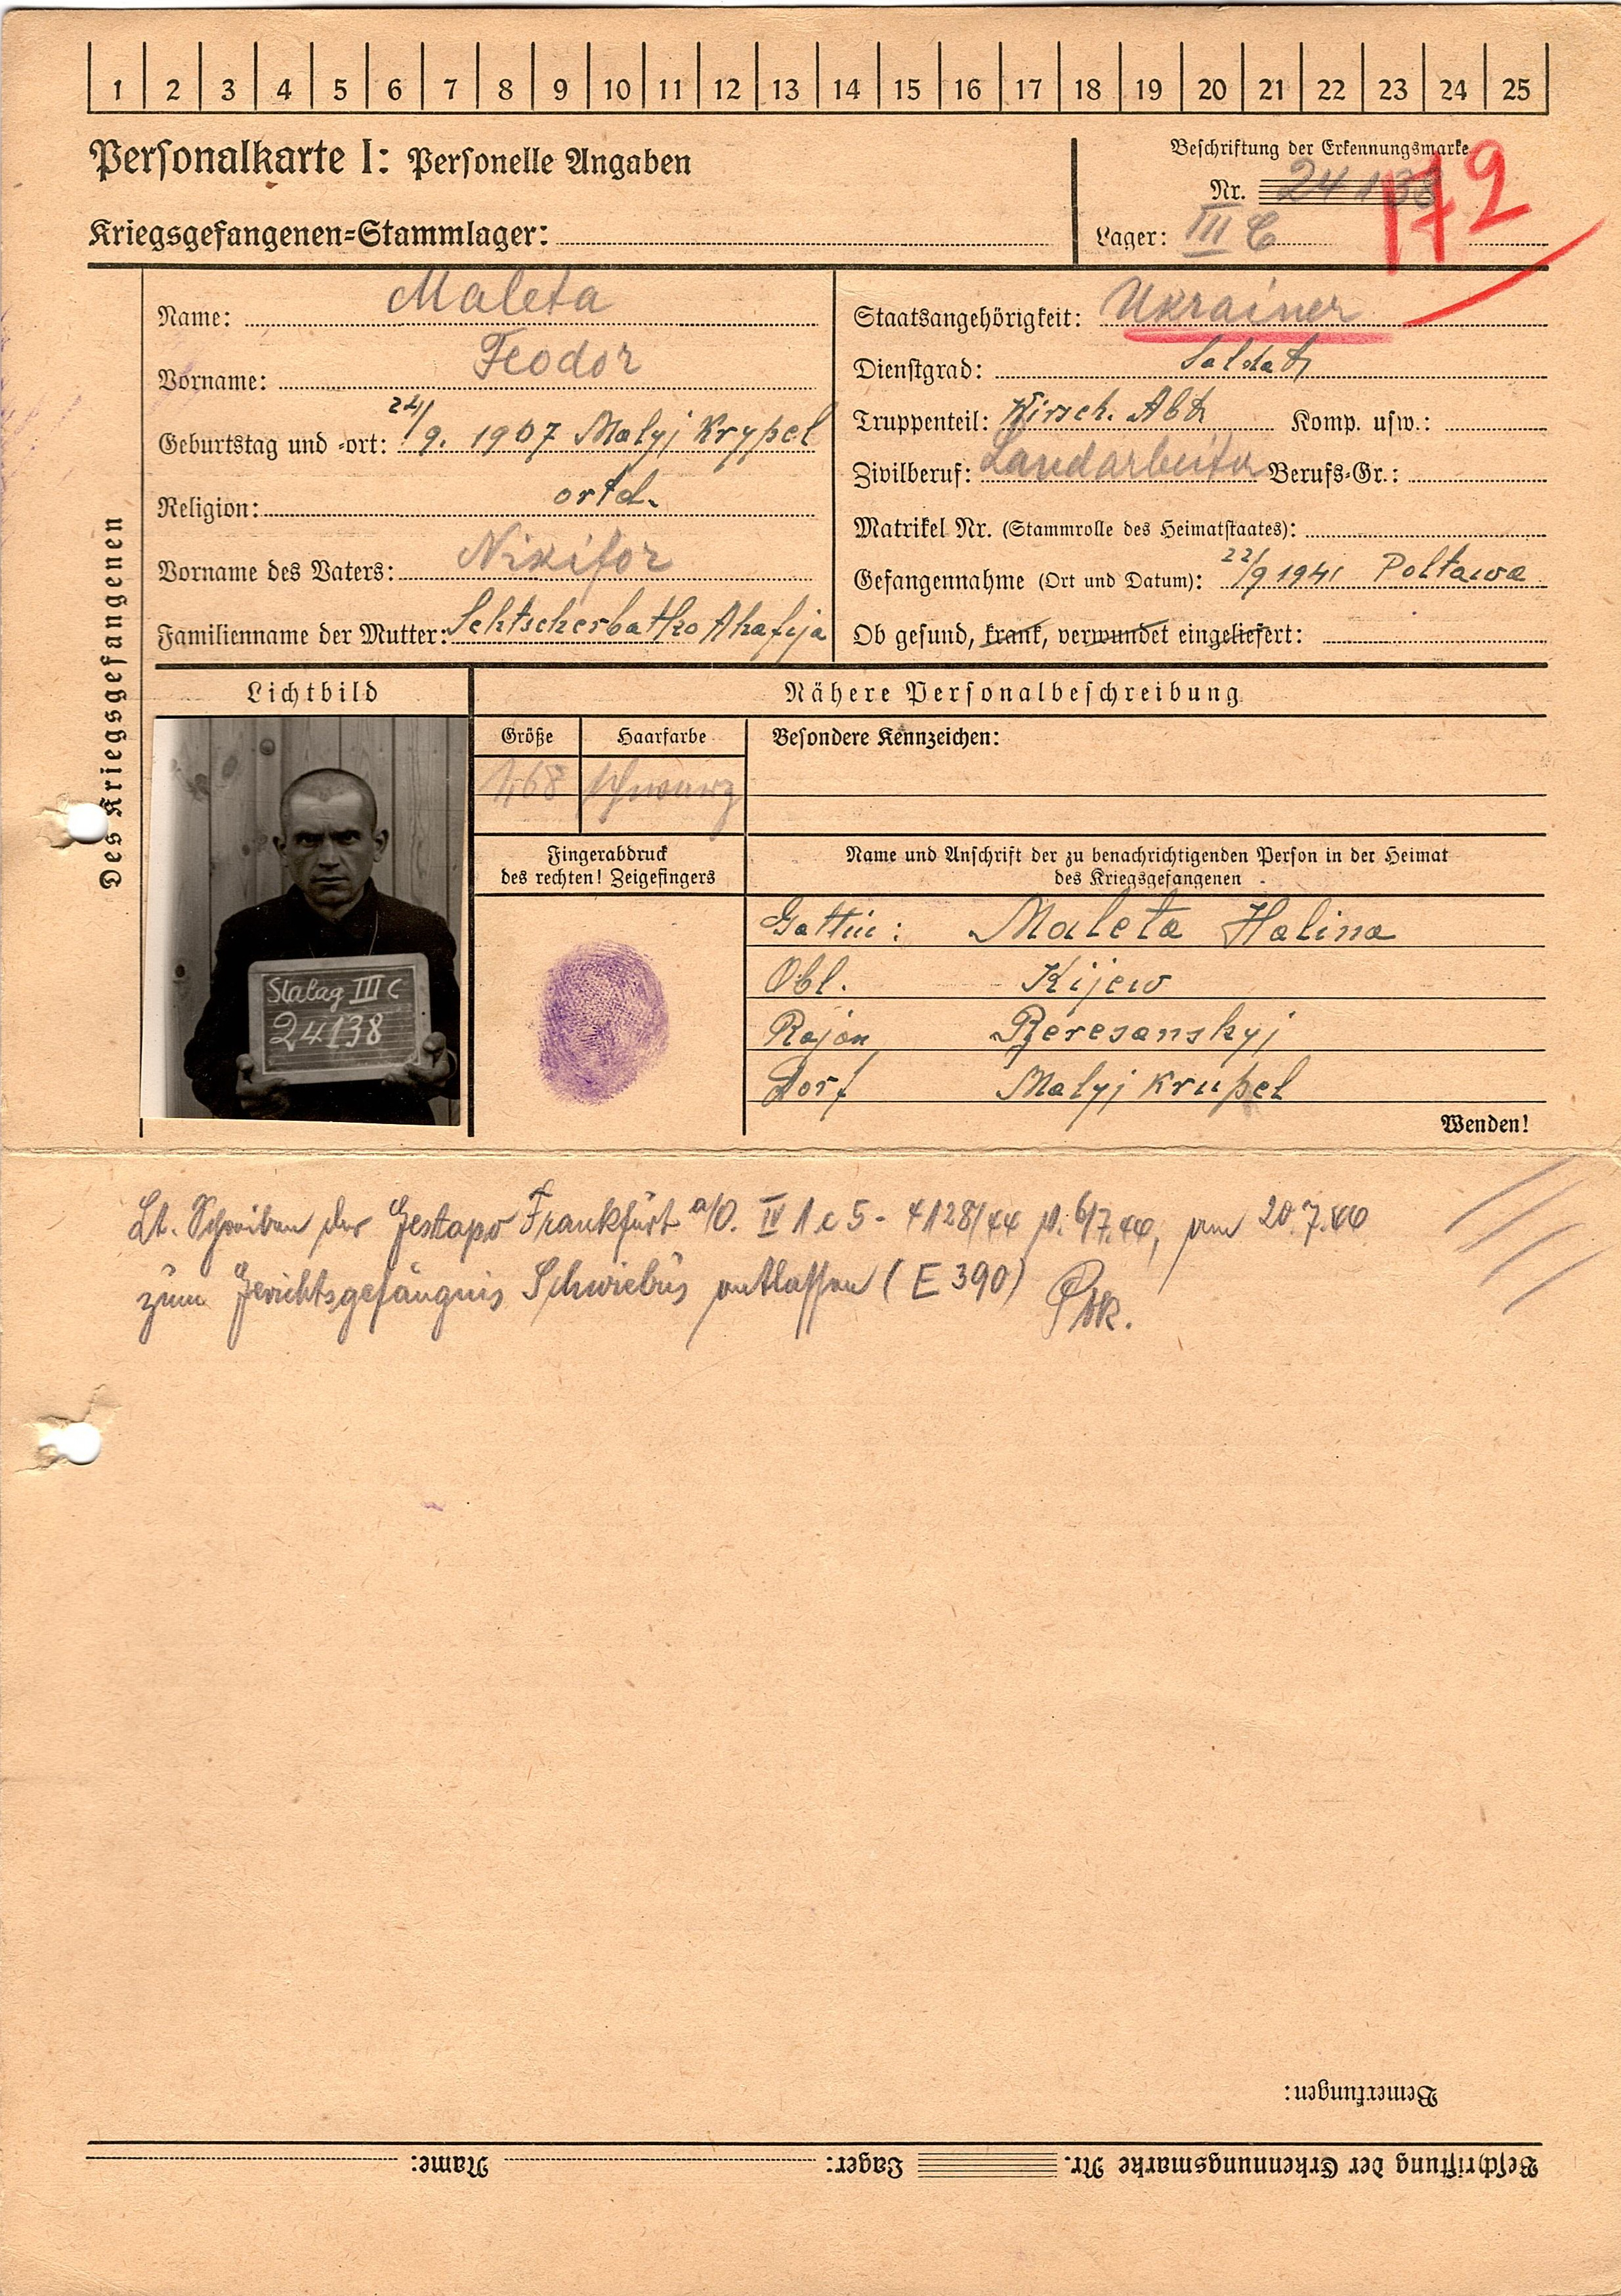 1 2 3 4 5 6 7 8 9 10 11 12 13 14 15 16 17 18 19 20 21 22 23 24 25
Personalkarte I: Personelle Angaben
Kriegsgefangenen-Stammlager:
Beschriftung der Erkennungsmarke
Nr. 24138
Lager: III C
172
Des Kriegsgefangenen
Name: Maleta
Vorname: Feodor
Geburtstag und -ort: 24/9. 1907 Malyj Krypel
Religion: ortd.
Vorname des Vaters: Nikifor
Familienname der Mutter: Schtscherbatko Ahafija
Staatsangehörigkeit: Ukrainer
Dienstgrad: Soldat
Truppenteil: Kirsch. Abt Komp. usw.:
Zivilberuf: Landarbeiter Berufs-Gr.:
Matrikel Nr. (Stammrolle des Heimatstaates):
Gefangennahme (Ort und Datum): 22/9 1941 Poltawa
Ob gesund, krank, verwundet eingeliefert:
Lichtbild
Stalag III C
24138
Nähere Personalbeschreibung
Größe Haarfarbe Besondere Kennzeichen:
1,68 schwarz
Fingerabdruck
des rechten! Zeigefingers
Name und Anschrift der zu benachrichtigenden Person in der Heimat
des Kriegsgefangenen
Gattin: Maleta Halina
Obl. Kijew
Rajon Beresanskyj
Dorf Malyj Krupel
Wenden!
Lt. Schreiben der Gestapo Frankfurt a/O. IV 1 c 5 - 4128/44 v. 6/7.44, am 20.7.44
zum Gerichtsgefängnis Schwiebus entlassen (E 390)
Bemerkungen:
Beschriftung der Erkennungsmarke Nr. Lager: Name: